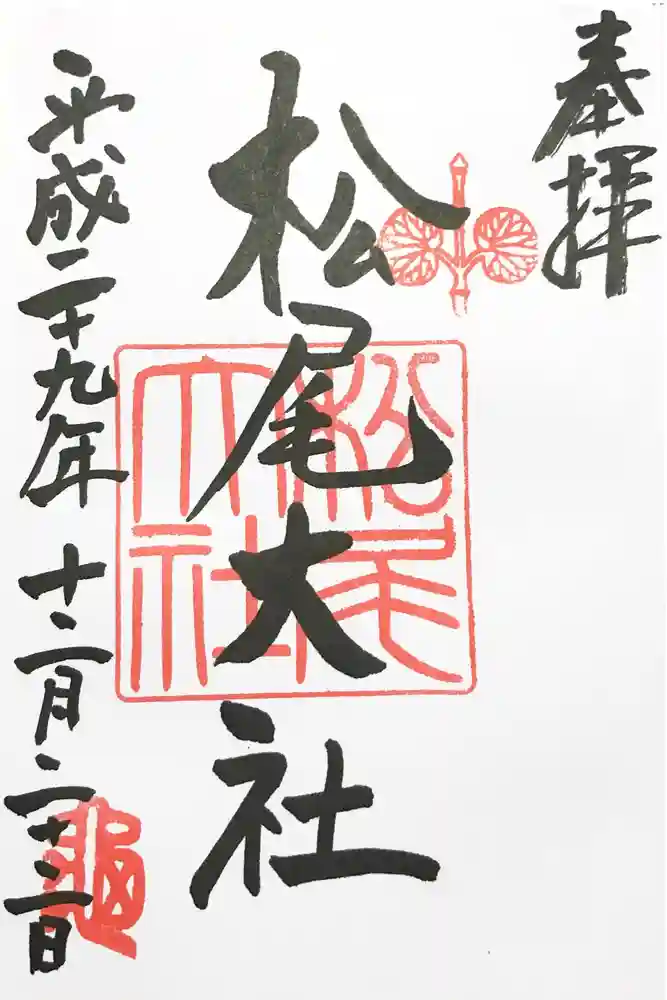 奉拝
松尾大社
松尾大社
平成二十九年十二月二十三日